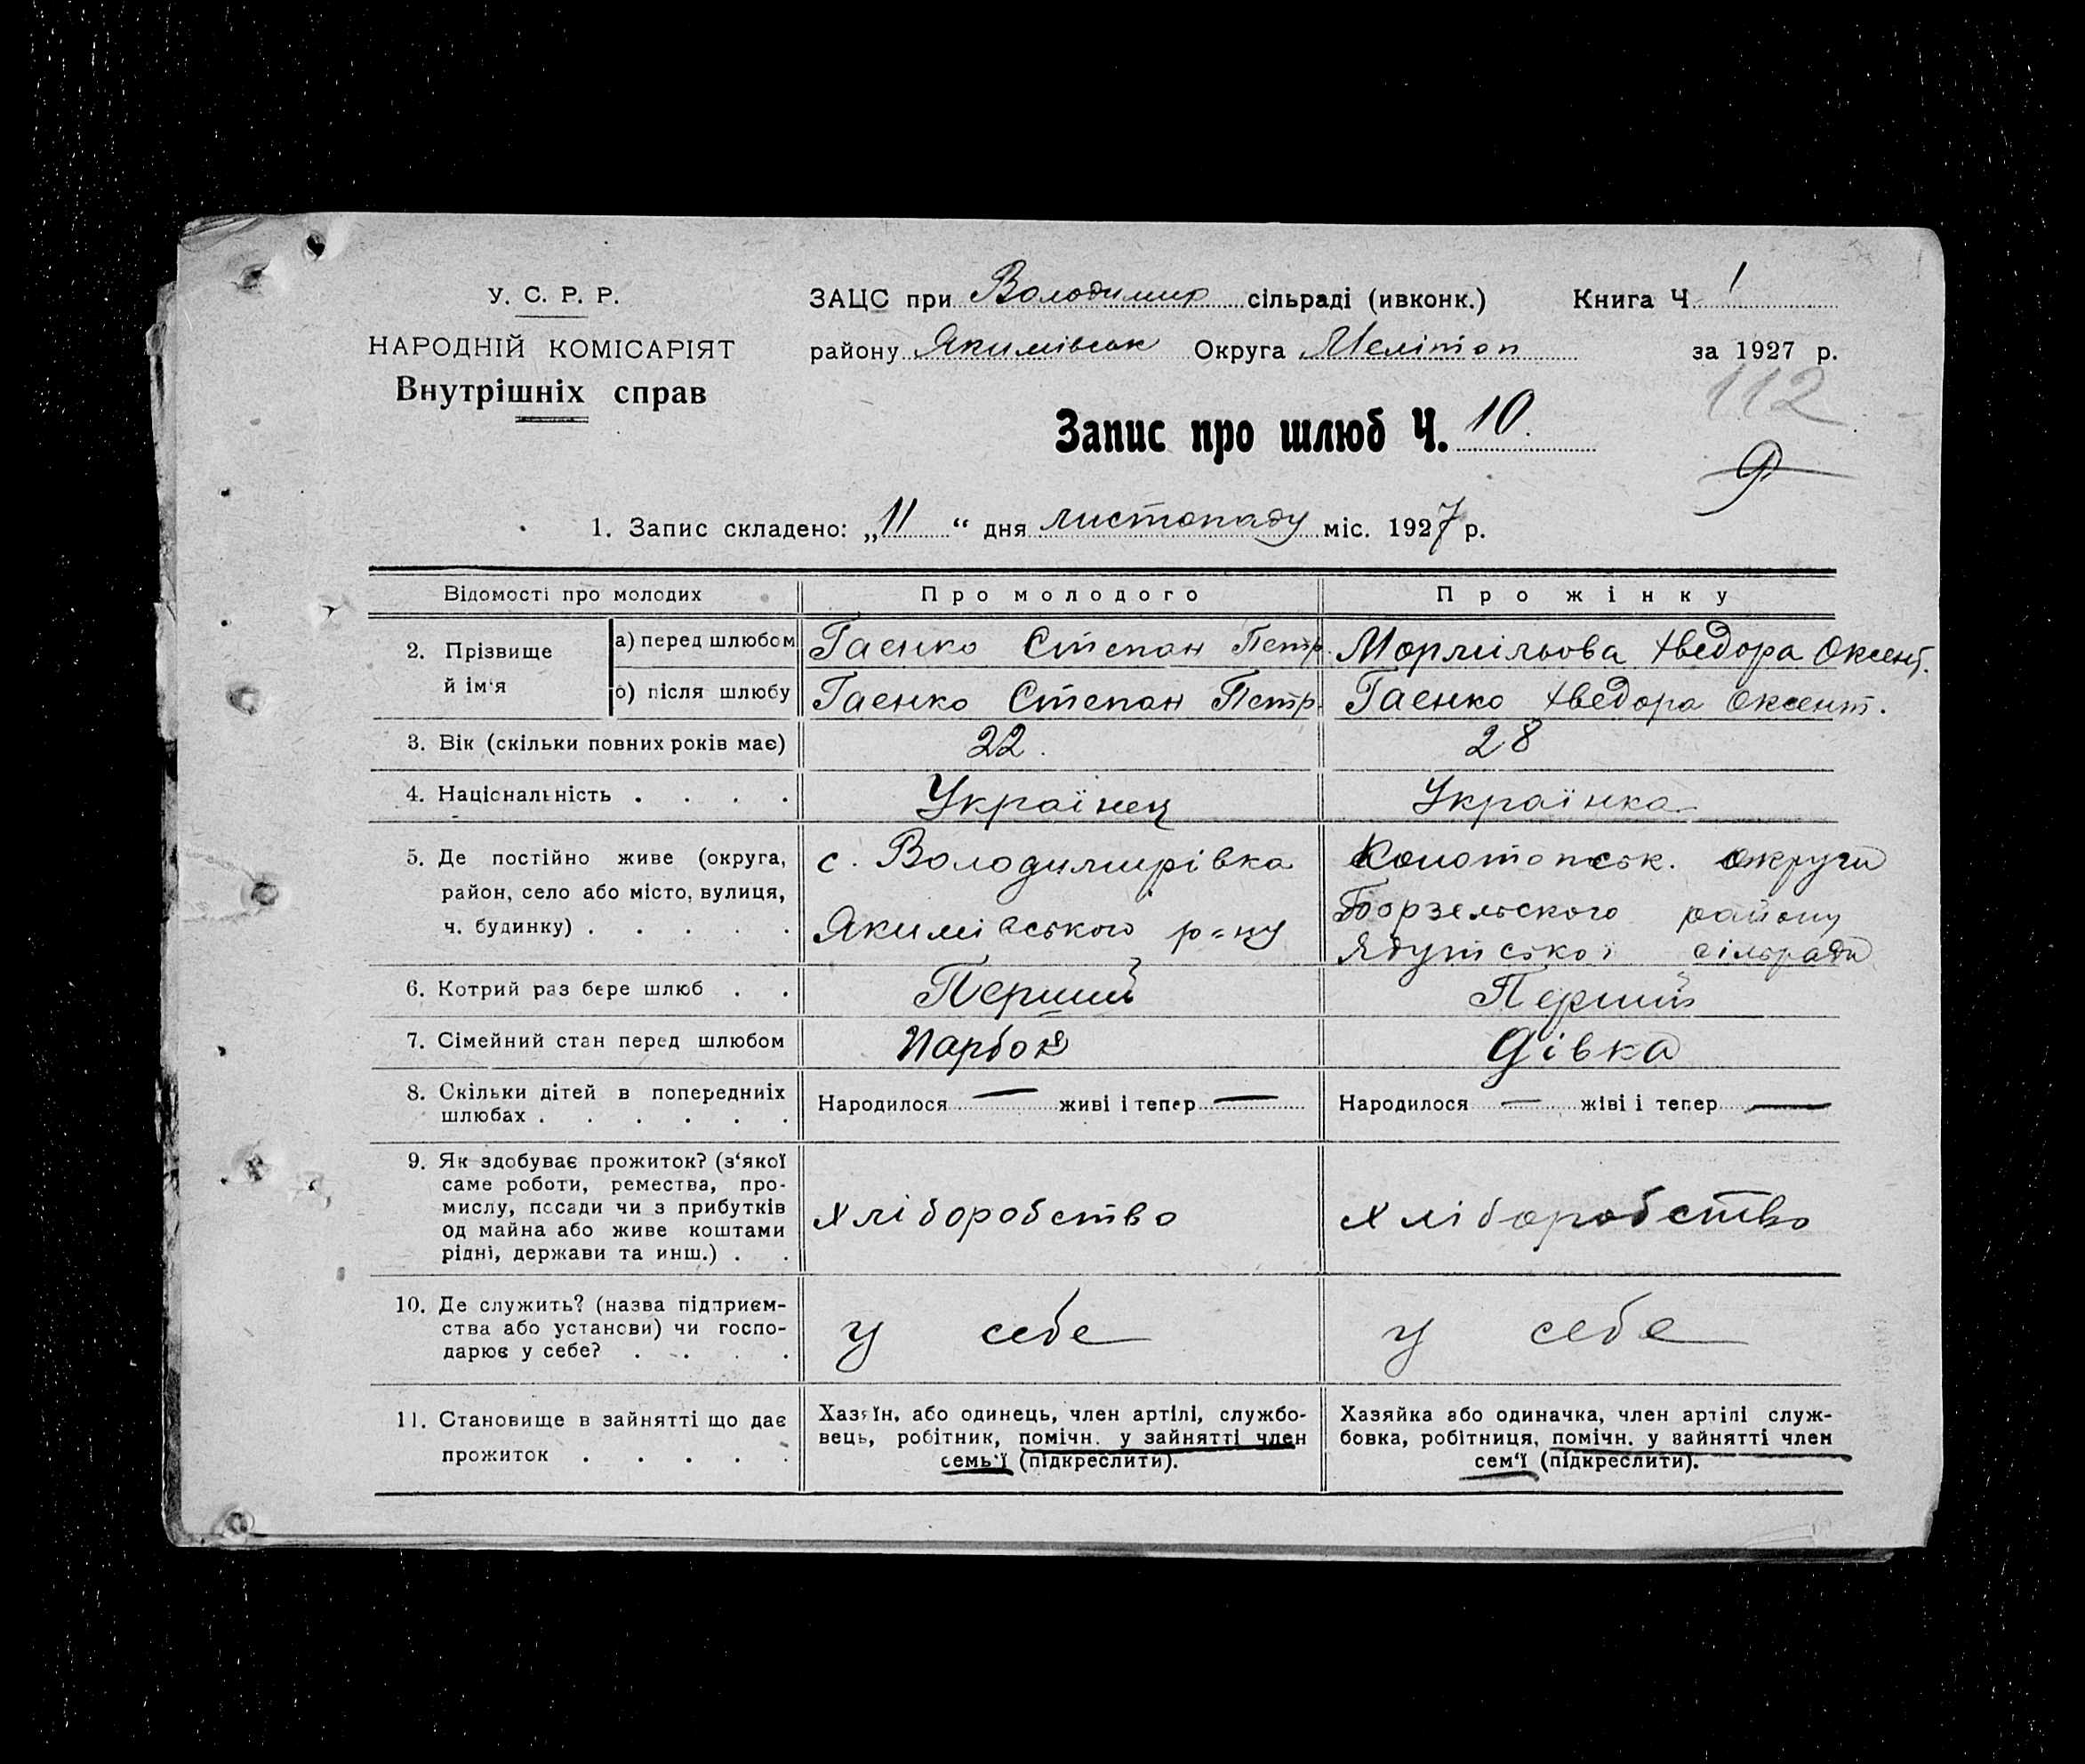 У. С. Р. Р.
НАРОДНІЙ КОМІСАРІЯТ
Внутрішніх справ
ЗАЦС при Володимир сільраді (ивконк.) Книга Ч 1
району Якимівськ Округа Меліт оп за 1927 р.
112
Запис про шлюб Ч. 10.
9
1. Запис складено: „11“ дня листопаду міс. 1927 р.
Відомості про молодих Про молодого Про жінку
2. Прізвище й ім‘я
а) перед шлюбом Гаенко Степан Петр. Мормильова Хведора Оксент.
б) після шлюбу Гаенко Степан Петр. Гаенко Хведора Оксент.
3. Вік (скільки повних років має) 22. 28
4. Національність . . . . Українец Українка
5. Де постійно живе (округа, с. Володимирівка Конотопськ. округи
район, село або місто, вулиця, Борзельского району
ч. будинку) . . . . . Якимівського р=ну Ядутської сільради
6. Котрий раз бере шлюб . . Перший Перший
7. Сімейний стан перед шлюбом Парбок Дівка
8. Скільки дітей в попередниіх
шлюбах . . . . . . Народилося — живі і тепер — Народилося — жіві і тепер —
9. Як здобуває прожиток? (з‘якої
саме роботи, ремества, про-
мислу, посади чи з прибутків хліборобство хліборобство
од майна або живе коштами
рідні, держави та инш.) . .
10. Де служить? (назва підприєм-
ства або установи) чи госпо- у себе у себе
дарює у себе? . . . .
11. Становище в зайнятті що дає
прожиток . . . . .
Хазяїн, або одинець, член артілі, службо-
вець, робітник, помічн. у зайнятті член
семь‘ї (підкреслити).
Хазяйка або одиначка, член артілі служ-
бовка, робітниця, помічн. у зайнятті член
сем‘ї (підкреслити).